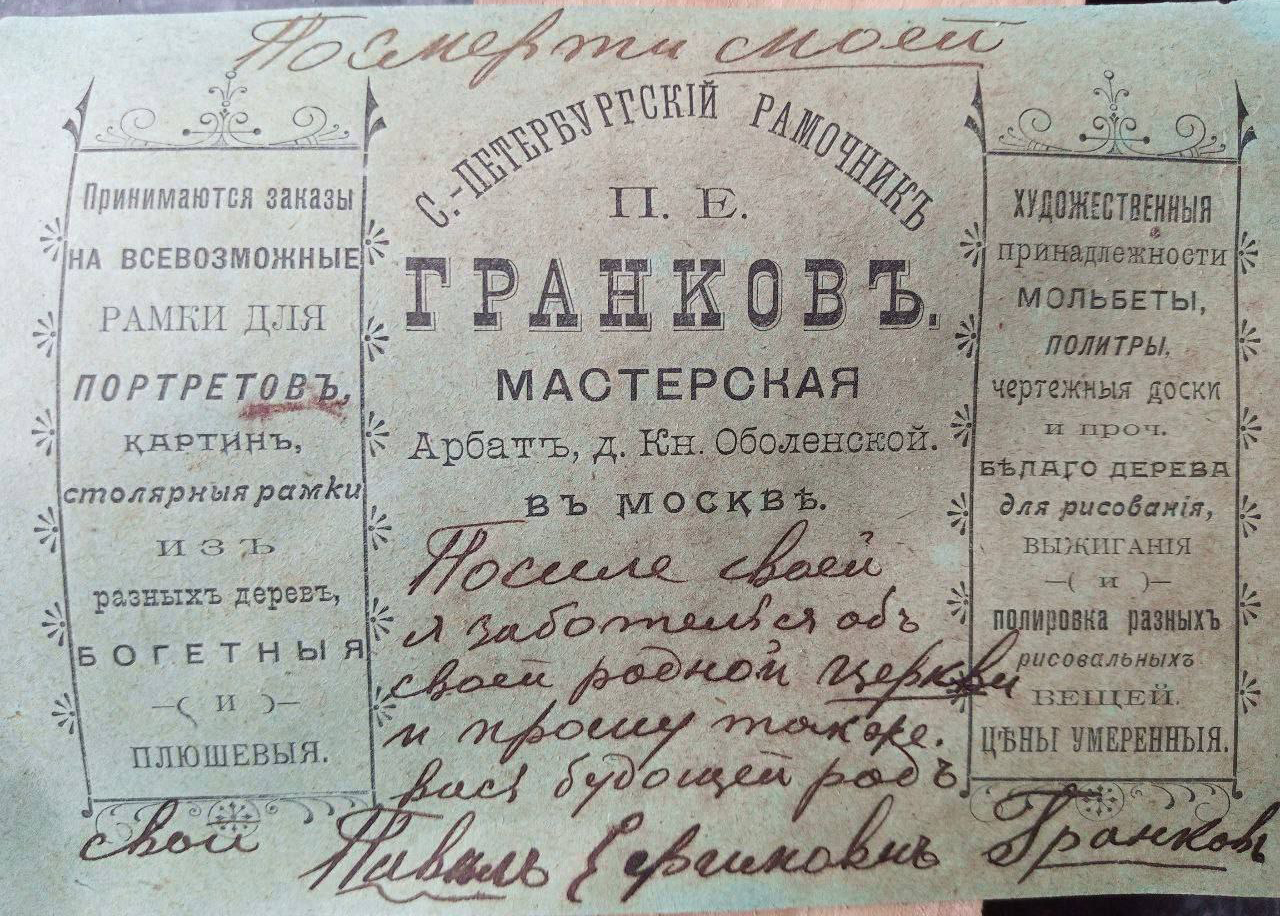 Посмерти моей
Принимаются заказы
НА ВСЕВОЗМОЖНЫЕ
РАМКИ ДЛЯ
ПОРТРЕТОВЪ,
КАРТИНЪ,
столярныя рамки
ИЗЪ
разныхъ деревъ,
БОГЕТНЫЯ
—( И )—
ПЛЮШЕВЫЯ.
С.-ПЕТЕРБУРГСКІЙ РАМОЧНИКЪ
П. Е.
ГРАНКОВЪ.
МАСТЕРСКАЯ
Арбатъ, д. Кн. Оболенской.
ВЪ МОСКВѢ.
Посиле своей
я заботелься объ
своей родной церкви
и прошу также.
васъ будощей родъ
свой Гранковъ
ХУДОЖЕСТВЕННЫЯ
принадлежности
МОЛЬБЕТЫ,
ПОЛИТРЫ,
чертежныя доски
и проч.
БѢЛАГО ДЕРЕВА
для рисованія,
ВЫЖИГАНІЯ
—( и )—
полировка разныхъ
рисовальныхъ
ВЕЩЕЙ.
ЦѢНЫ УМЕРЕННЫЯ.